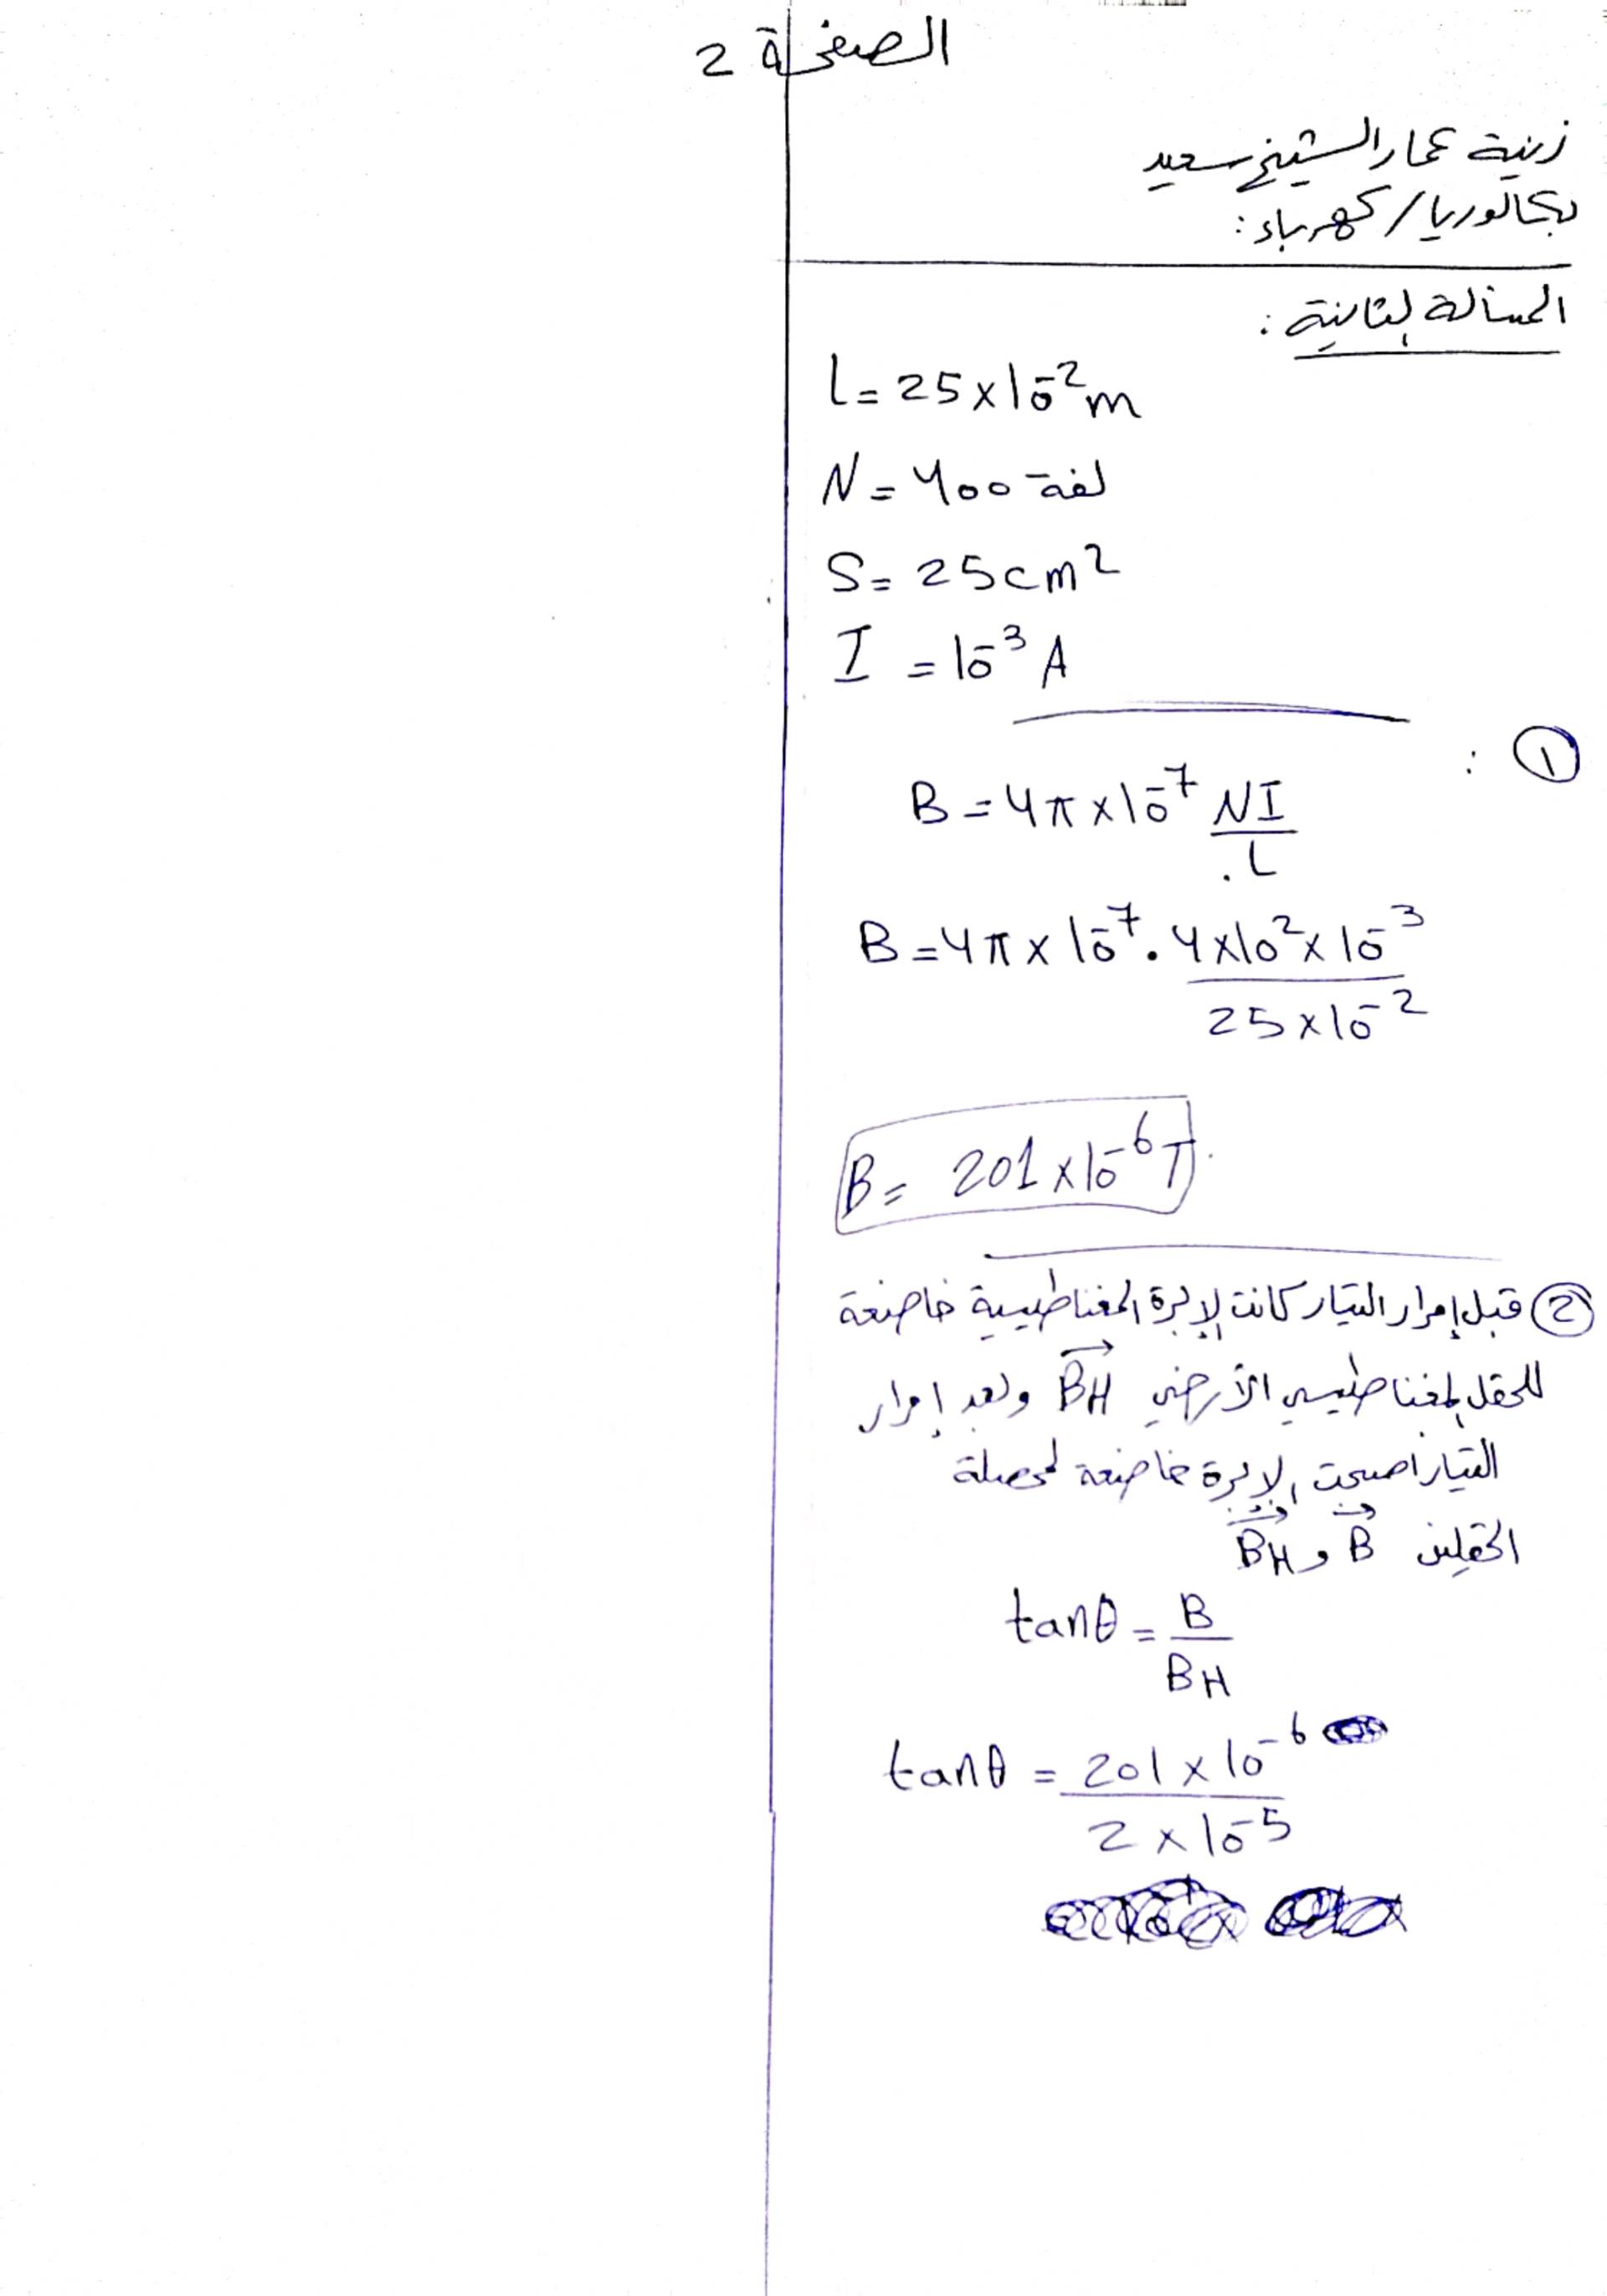 الصفحة 2
زينة عمار الشيخ سعيد
بكالوريا / كهرباء:
المسألة الثانية:
L = 25 × 10⁻² m
N = 400 لفة
S = 25 cm²
I = 10⁻³ A
①:
B = 4π × 10⁻⁷ NI / L
B = 4π × 10⁻⁷ . 4×10² × 10⁻³ / 25 × 10⁻²
B = 201 × 10⁻⁶ T
② قبل إمرار التيار كانت الإبرة المغناطيسية خاضعة
للحقل المغناطيسي الأرضي BH وبعد إمرار
التيار اصبحت الإبرة خاضعة لمحصلة
الحقلين B و BH
tanθ = B / BH
tanθ = 201 × 10⁻⁶ / 2 × 10⁻⁵